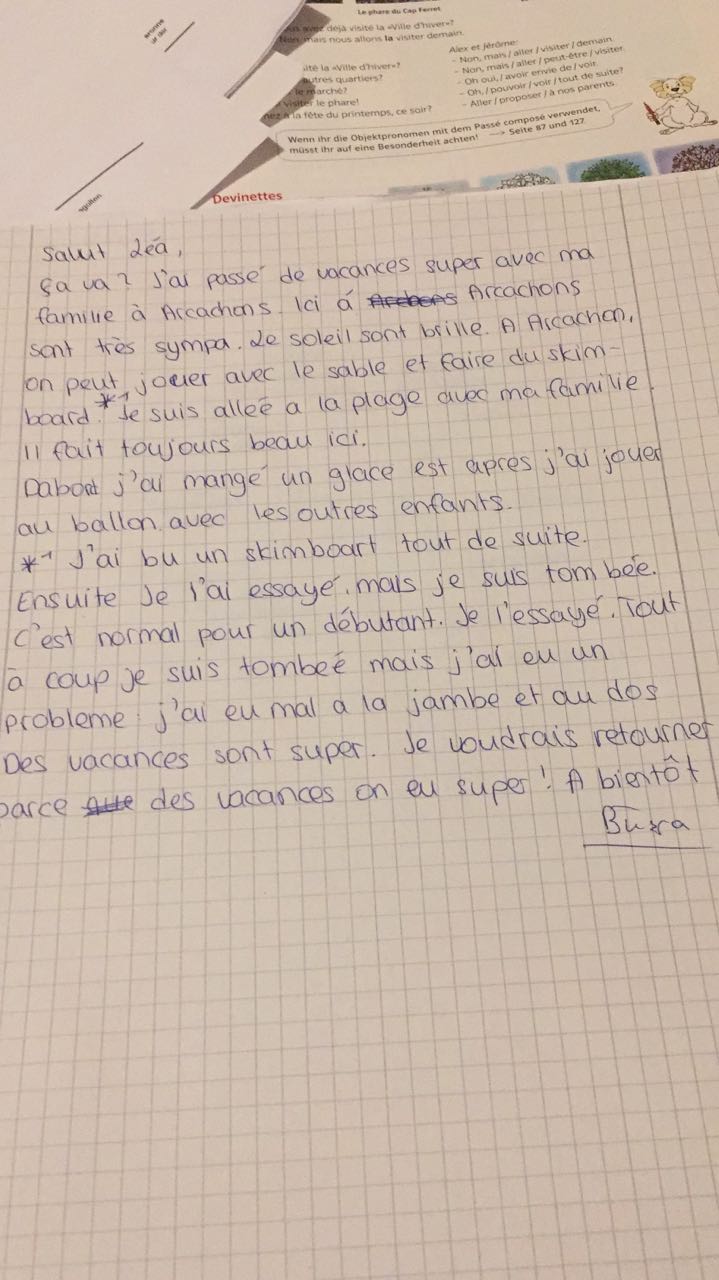 Le phare du Cap Ferret
avez déjà visité la «Ville d'hiver»?
mais nous allons la visiter demain.
Alex et Jérôme:
– Non, mais / aller / visiter / demain.
ité la «Ville d'hiver»?
– Non, mais / aller / peut-être / visiter.
autres quartiers?
– Oh oui, / avoir envie de / voir.
le marché?
– Oh, / pouvoir / voir / tout de suite?
visiter le phare!
– Aller / proposer / à nos parents.
nez à la fête du printemps, ce soir?
Wenn ihr die Objektpronomen mit dem Passé composé verwendet,
müsst ihr auf eine Besonderheit achten! → Seite 87 und 127
Devinettes
Salut Léa,
ça va? J'ai passé de vacances super avec ma
familie à Arcachons. Ici á Arcachons
sont très sympa. Le soleil sont brille. A Arcachon,
on peut jouer avec le sable et faire du skim-
board. *1 Je suis alleé a la plage avec ma familie.
Il fait toujours beau ici.
Dabort j'ai mangé un glace est apres j'ai jouer
au ballon avec les outres enfants.
*1 J'ai bu un skimboart tout de suite.
Ensuite Je l'ai essayé, mais je suis tombée.
C'est normal pour un débutant. Je l'essayé. Tout
à coup je suis tombeé mais j'ai eu un
probleme: j'ai eu mal a la jambe et au dos
Des vacances sont super. Je voudrais retourner
parce des vacances on eu super! A bientôt
Busra